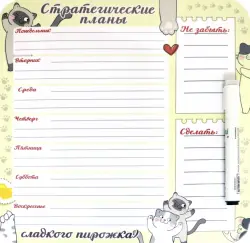 Стратегические
планы
Понедельник
Вторник
Среда
Четверг
Пятница
Суббота
Воскресенье
Не забыть:
Сделать:
сладкого пирожка?